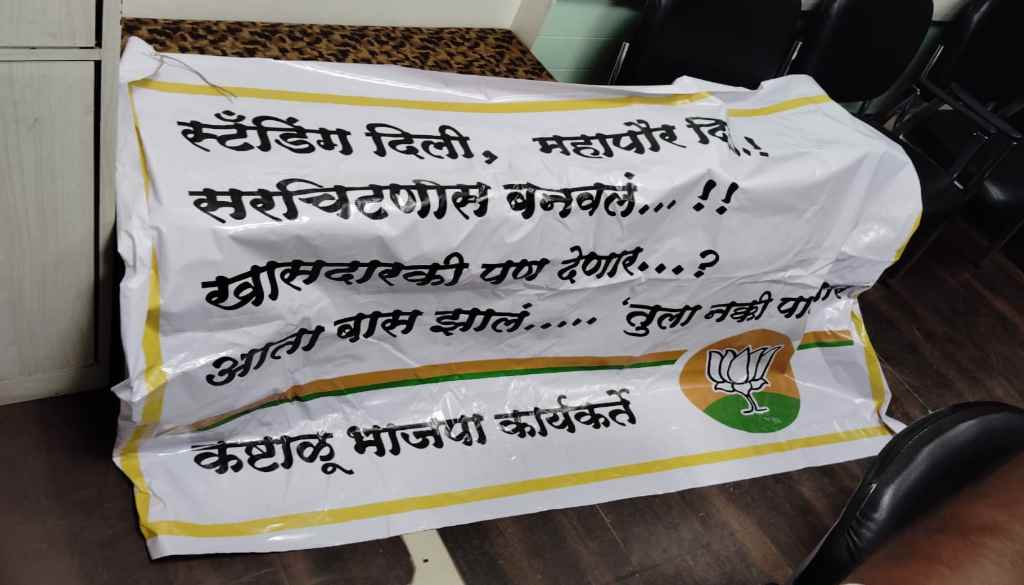 स्टँडिंग दिली, महापौर
सरचिटणीस बनवलं... !!
खासदारकी पण देणार...?
आता बास झालं..... 'तुला नक्की
कष्टाळू भाजपा कार्यकर्ते